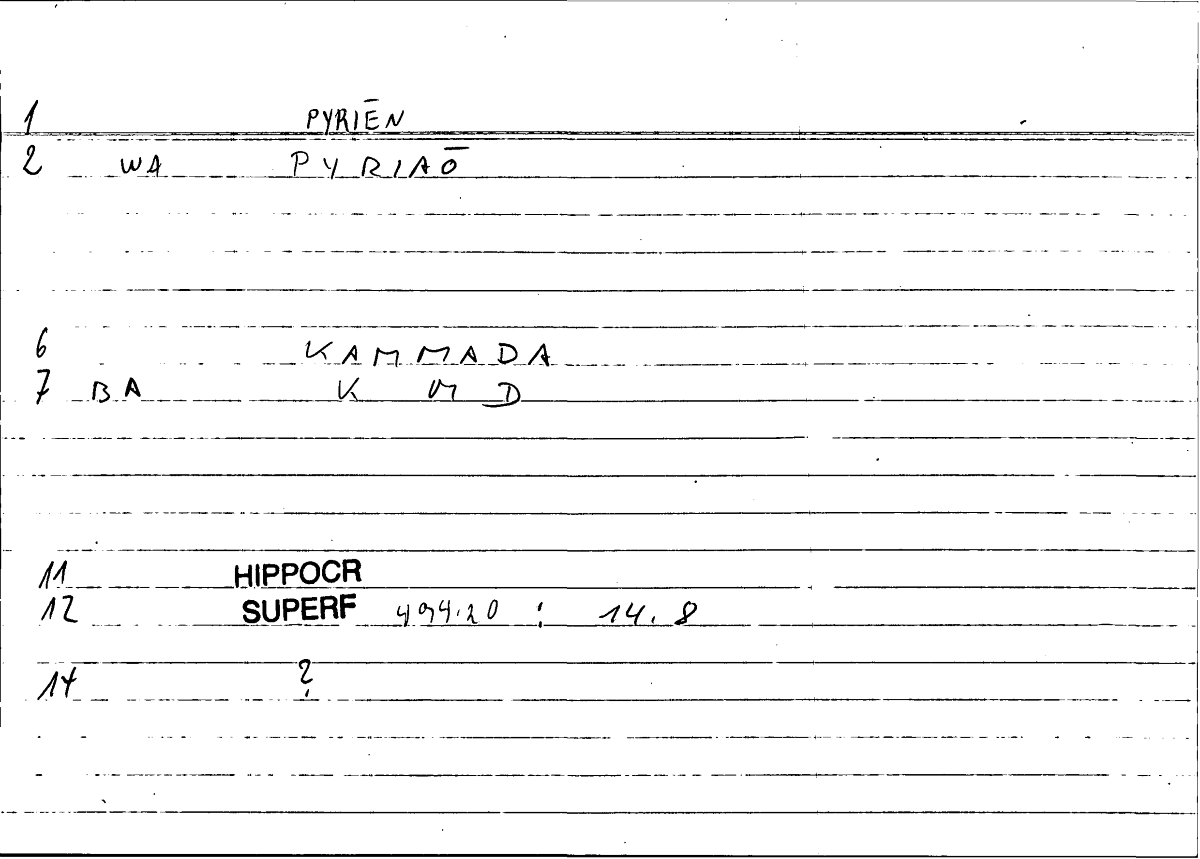 1 PYRIĒN
2 WA PYRIAŌ
6 KAMMADA
7 BA K M D
11 HIPPOCR
12 SUPERF 494.20 : 14.8
14 ?